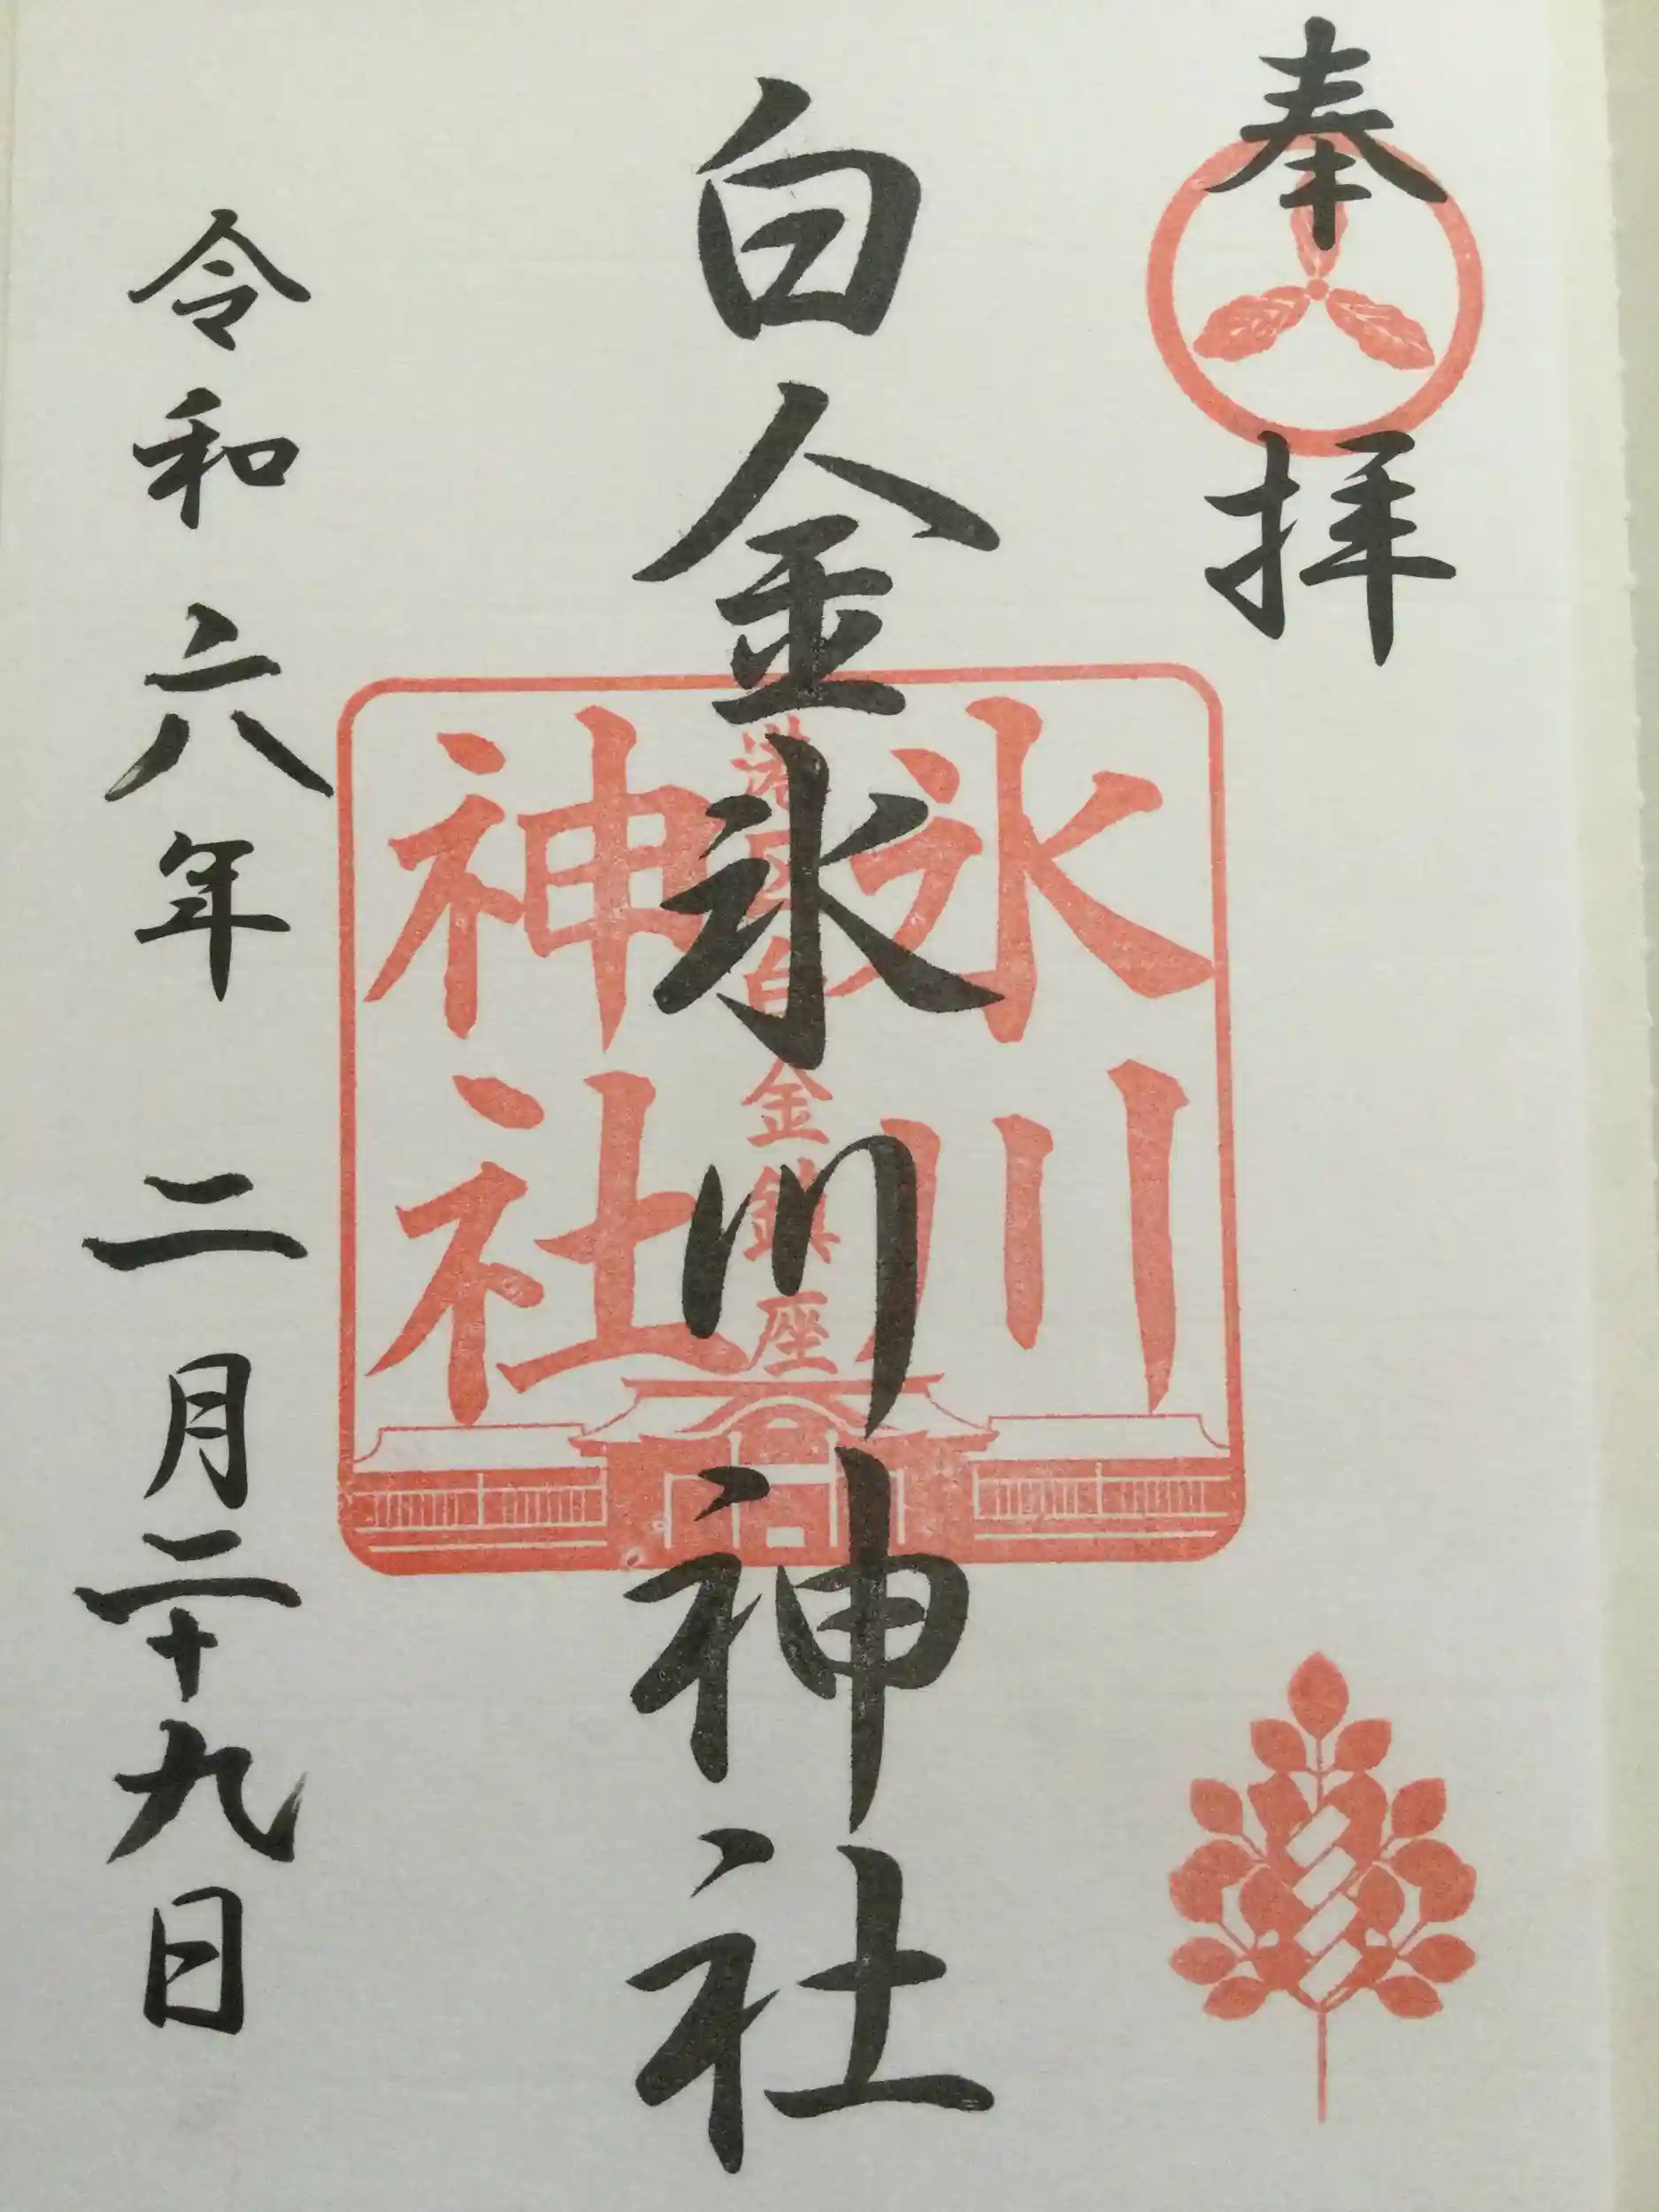 奉拝
白金氷川神社
氷川
港区白金鎮座
神社
令和六年 二月二十九日